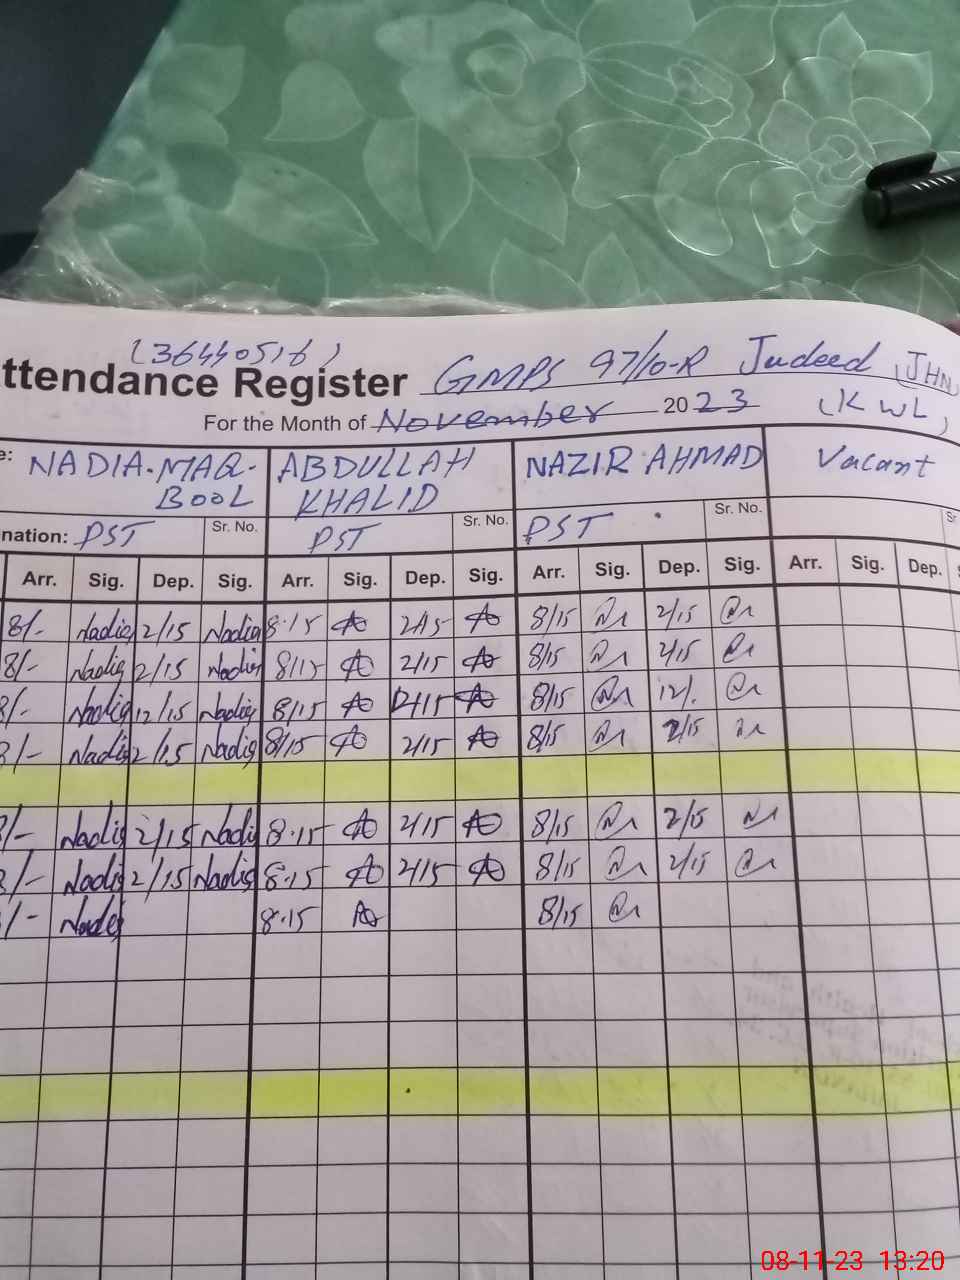 (36440516)
ttendance Register GMPS 97/10-R Judeed (JHN)
For the Month of November 2023 (KWL)
e: NADIA-MAQ- ABDULLAH NAZIR AHMAD Vacant
BOOL KHALID
nation: PST Sr. No. PST Sr. No. PST Sr. No. Sr
Arr. Sig. Dep. Sig. Arr. Sig. Dep. Sig. Arr. Sig. Dep. Sig. Arr. Sig. Dep. S
8/- Nadia 2/15 Nadia 8.15 2/15 8/15 2/15
8/- Nadia 2/15 Nadia 8/15 2/15 8/15 2/15
8/- Nadia 12/15 Nadia 8/15 12/15 8/15 12/.
8/- Nadia 2/15 Nadia 8/15 2/15 8/15 2/15
8/- Nadia 2/15 Nadia 8.15 2/15 8/15 2/15
8/- Nadia 2/15 Nadia 8.15 2/15 8/15 2/15
/- Nadia 8.15 8/15
08-11-23 13:20